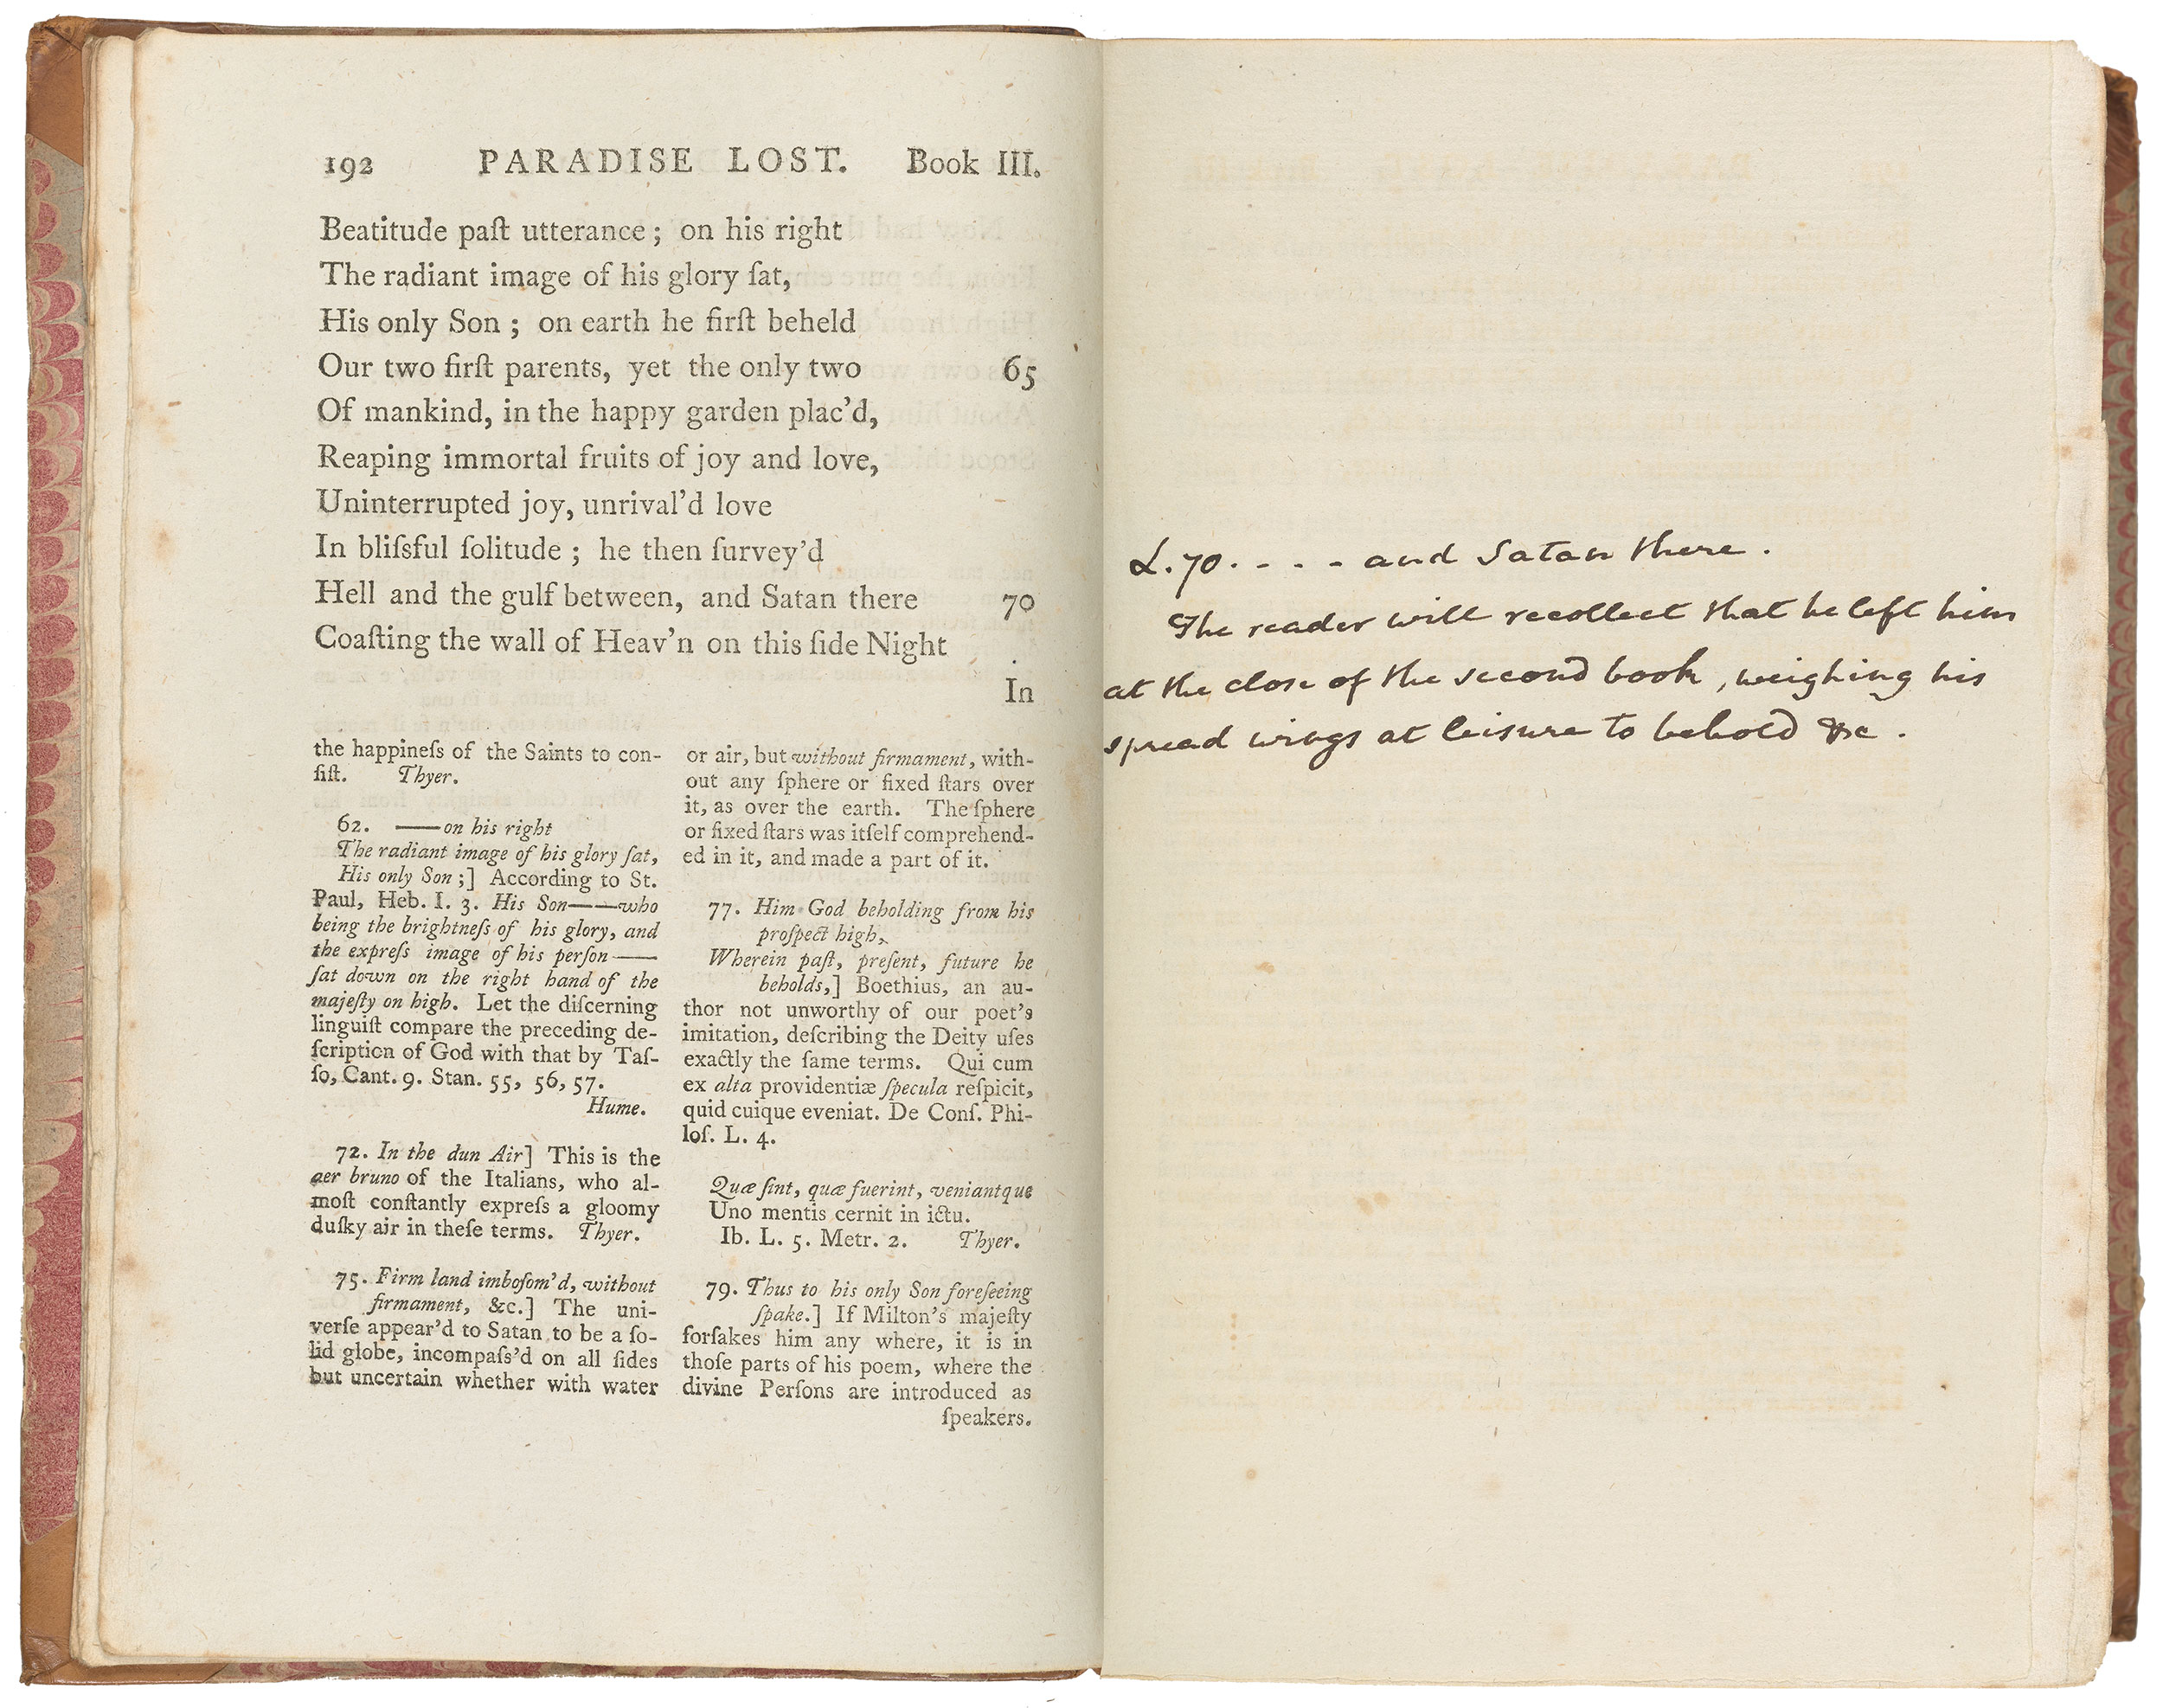 192 PARADISE LOST. Book III.
Beatitude paſt utterance ; on his right
The radiant image of his glory ſat,
His only Son ; on earth he firſt beheld
Our two firſt parents, yet the only two 65
Of mankind, in the happy garden plac'd,
Reaping immortal fruits of joy and love,
Uninterrupted joy, unrival'd love
In bliſsful ſolitude ; he then ſurvey'd
Hell and the gulf between, and Satan there 70
Coaſting the wall of Heav'n on this ſide Night
In
the happineſs of the Saints to con-
ſiſt. Thyer.
62. ——on his right
The radiant image of his glory ſat,
His only Son ;] According to St.
Paul, Heb. I. 3. His Son——who
being the brightneſs of his glory, and
the expreſs image of his perſon——
ſat down on the right hand of the
majeſty on high. Let the diſcerning
linguiſt compare the preceding de-
ſcription of God with that by Taſ-
ſo, Cant. 9. Stan. 55, 56, 57.
Hume.
72. In the dun Air] This is the
aer bruno of the Italians, who al-
moſt conſtantly expreſs a gloomy
duſky air in theſe terms. Thyer.
75. Firm land imboſom'd, without
firmament, &c.] The uni-
verſe appear'd to Satan to be a ſo-
lid globe, incompaſs'd on all ſides
but uncertain whether with water
or air, but without firmament, with-
out any ſphere or fixed ſtars over
it, as over the earth. The ſphere
or fixed ſtars was itſelf comprehend-
ed in it, and made a part of it.
77. Him God beholding from his
proſpect high,
Wherein paſt, preſent, future he
beholds,] Boethius, an au-
thor not unworthy of our poet's
imitation, deſcribing the Deity uſes
exactly the ſame terms. Qui cum
ex alta providentiæ ſpecula reſpicit,
quid cuique eveniat. De Conſ. Phi-
loſ. L. 4.
Quæ ſint, quæ fuerint, veniantque
Uno mentis cernit in ictu.
Ib. L. 5. Metr. 2. Thyer.
79. Thus to his only Son foreſeeing
ſpake.] If Milton's majeſty
forſakes him any where, it is in
thoſe parts of his poem, where the
divine Perſons are introduced as
ſpeakers.
L. 70. - - - and Satan there.
The reader will recollect that he left him
at the close of the second book, weighing his
spread wings at leisure to behold &c.